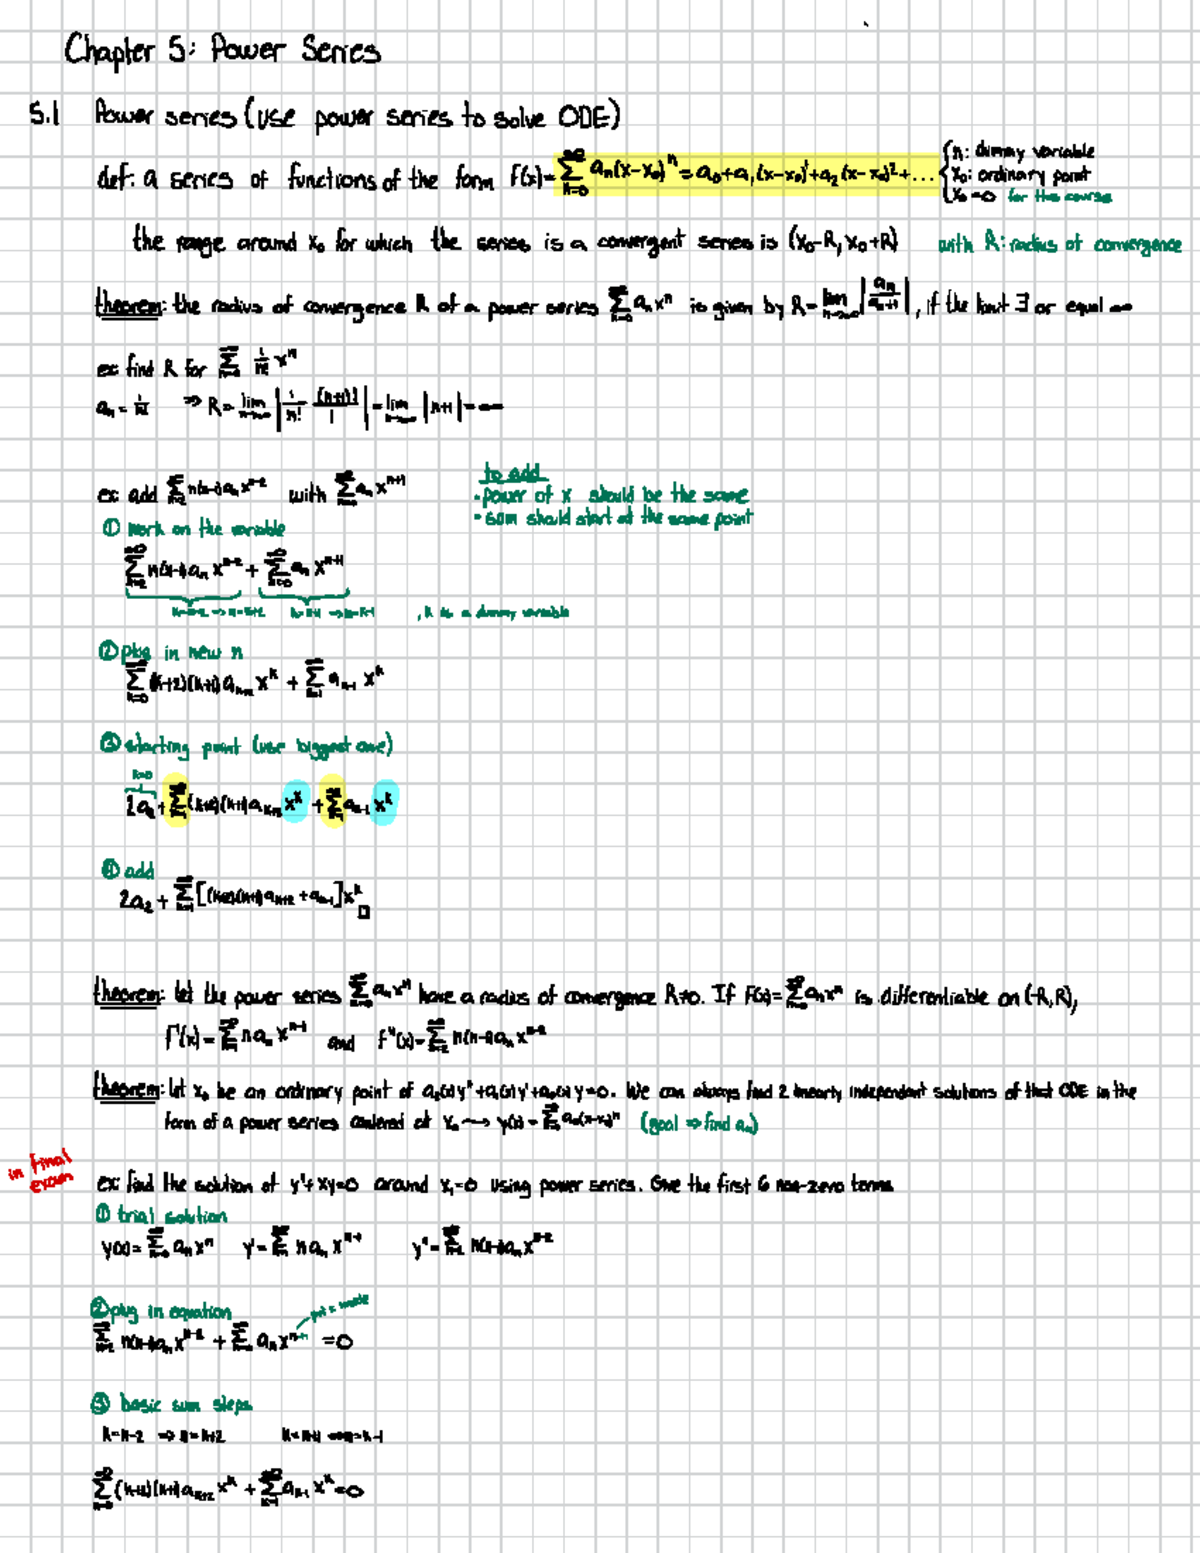 Chapter 5: Power Series
5.1 Power series (use power series to solve ODE)
def: a series of functions of the form f(x)= ∑_{n=0}^{∞} aₙ(x-x₀)ⁿ = a₀+a₁(x-x₀)¹+a₂(x-x₀)²+...
{n: dummy variable
x₀: ordinary point
x₀=0 for this course
the range around x₀ for which the series is a convergent series is (x₀-R, x₀+R) with R: radius of convergence
theorem: the radius of convergence R of a power series ∑_{n=0}^{∞} aₙxⁿ is given by R= lim_{n→∞} |aₙ/aₙ₊₁|, if the limit ∃ or equal ∞
ex: find R for ∑_{n=0}^{∞} 1/n! xⁿ
aₙ = 1/n! ⇒ R= lim_{n→∞} |1/n! (n+1)!/1| = lim_{n→∞} |n+1| = ∞
ex: add ∑_{n=2}^{∞} n(n-1)aₙxⁿ⁻² with ∑_{n=0}^{∞} aₙxⁿ⁺¹
to add
- power of x should be the same
- sum should start at the same point
① work on the variable
∑_{n=2}^{∞} n(n-1)aₙxⁿ⁻² + ∑_{n=0}^{∞} aₙxⁿ⁺¹
k=n-2 ⇒ n=k+2 k=n+1 ⇒ n=k-1 , k is a dummy variable
② plug in new n
∑_{k=0}^{∞} (k+2)(k+1)aₖ₊₂xᵏ + ∑_{k=1}^{∞} aₖ₋₁xᵏ
③ starting point (use biggest one)
k=0
2a₂ + ∑_{k=1}^{∞} (k+2)(k+1)aₖ₊₂xᵏ + ∑_{k=1}^{∞} aₖ₋₁xᵏ
④ add
2a₂ + ∑_{k=1}^{∞} [(k+2)(k+1)aₖ₊₂ + aₖ₋₁]xᵏ □
theorem: let the power series ∑_{n=0}^{∞} aₙxⁿ have a radius of convergence R≠0. If f(x)= ∑_{n=0}^{∞} aₙxⁿ is differentiable on (-R,R),
f'(x)= ∑_{n=1}^{∞} naₙxⁿ⁻¹ and f"(x)= ∑_{n=2}^{∞} n(n-1)aₙxⁿ⁻²
theorem: let x₀ be an ordinary point of a₂(x)y"+a₁(x)y'+a₀(x)y=0. We can always find 2 linearly independent solutions of that ODE in the
form of a power series centered at x₀ → y(x)= ∑_{n=0}^{∞} aₙ(x-x₀)ⁿ (goal ⇒ find aₙ)
in final
exam
ex: find the solution of y"+xy=0 around x₀=0 using power series. Give the first 6 non-zero terms
① trial solution
y(x)= ∑_{n=0}^{∞} aₙxⁿ y'= ∑_{n=1}^{∞} naₙxⁿ⁻¹ y"= ∑_{n=2}^{∞} n(n-1)aₙxⁿ⁻²
② plug in equation
put x inside
∑_{n=2}^{∞} n(n-1)aₙxⁿ⁻² + ∑_{n=0}^{∞} aₙxⁿ⁺¹ =0
③ basic sum steps
k=n-2 ⇒ n=k+2 k=n+1 ⇒ n=k-1
∑_{k=0}^{∞} (k+2)(k+1)aₖ₊₂xᵏ + ∑_{k=1}^{∞} aₖ₋₁xᵏ=0